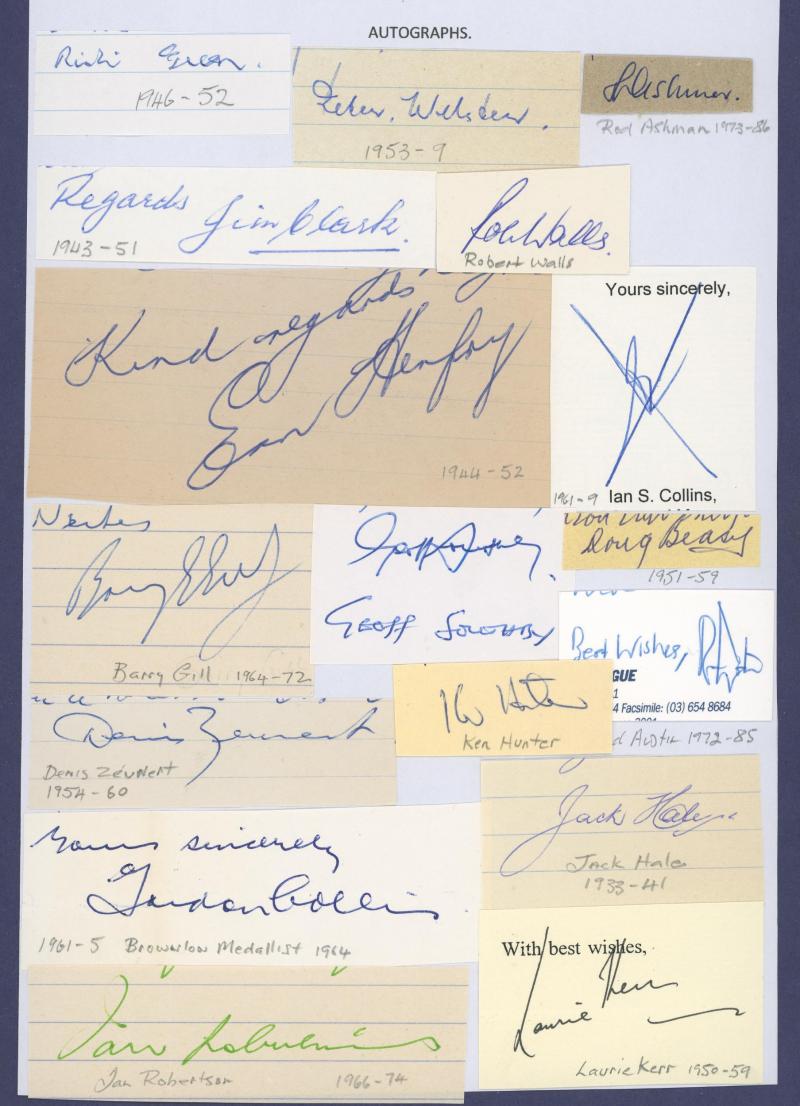 AUTOGRAPHS.
Richie Green.
1946-52
Peter Webster.
1953-9
Rod Ashman 1973-86
Regards Jim Clark.
1943-51
Robert Walls
Kind regards
Ern Henfry
1944-52
Yours sincerely,
1961-9 Ian S. Collins,
Barry Gill
Barry Gill 1964-72
GEOFF SOUTHBY
Doug Beasy
1951-59
Best Wishes, Rod Austin
GUE
1
4 Facsimile: (03) 654 8684
3001
d Austin 1972-85
Ken Hunter
Ken Hunter
Denis Zeunert
Denis Zeunert
1954-60
Jack Hale
Jack Hale
1933-41
Yours sincerely
Gordon Collis
1961-5 Brownlow Medallist 1964
With best wishes,
Laurie Kerr
Laurie Kerr 1950-59
Ian Robertson
Ian Robertson 1966-74